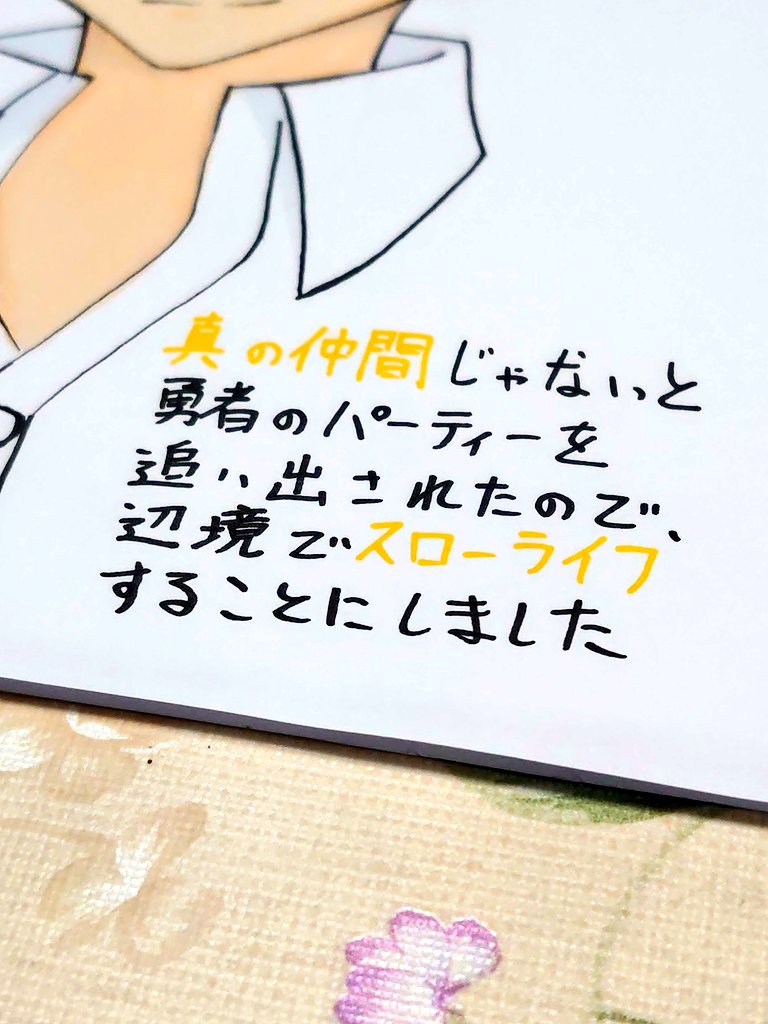 真の仲間じゃないと
勇者のパーティーを
追い出されたので、
辺境でスローライフ
することにしました